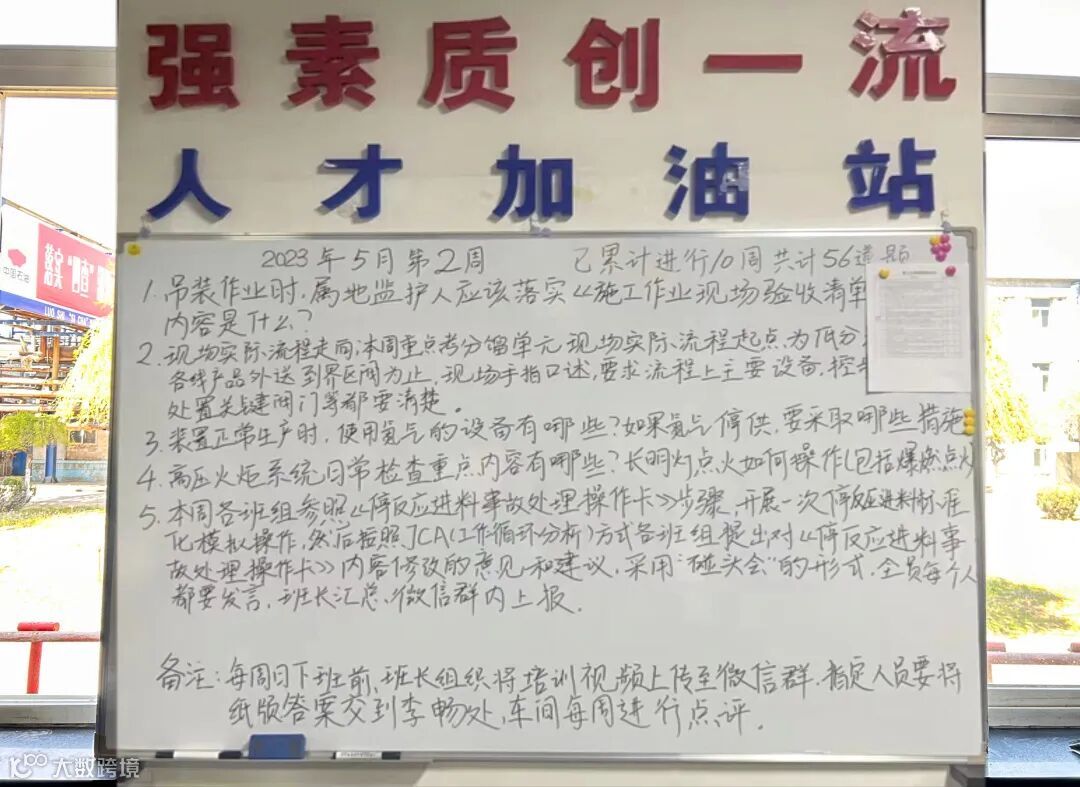 强素质创一流
人才加油站
2023年5月第2周 已累计进行10周共计56道题
1.吊装作业时,属地监护人应该落实《施工作业现场验收清单
内容是什么?
2.现场实际流程走向,本周重点考分馏单元现场实际流程起点为低分
各线产品外送到界区阀为止。现场手指口述,要求流程上主要设备、控
处置关键阀门等都要清楚。
3.装置正常生产时,使用氮气的设备有哪些?如果氮气停供,要采取哪些措施
4.高压火炬系统日常检查重点内容有哪些?长明灯点火如何操作(包括爆燃点火
5.本周各班组参照《停反应进料事故处理操作卡》步骤,开展一次停反应进料标准
化模拟操作,然后按照JCA(工作循环分析)方式各班组提出对《停反应进料事
故处理操作卡》内容修改的意见和建议,采用"碰头会"的形式,全员每个人
都要发言,班长汇总,微信群内上报。
备注:每周日下班前,班长组织将培训视频上传至微信群,指定人员要将
纸版答案交到李畅处,车间每周进行点评。
中国石油
LUO SHI
大数跨境